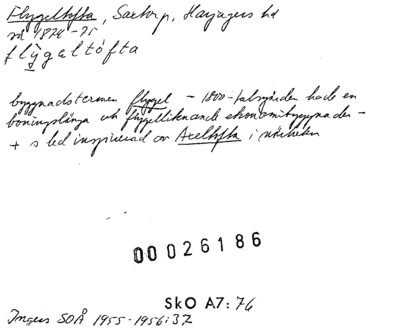 Flygeltofta, Saxtorp, Harjagers hd
nb 1824-25
flygaltófta
byggnadstermen flygel – 1800-talsgården hade en
boningslänga och flygelliknande ekonomibyggnader –
+ s led inspirerad av Axeltofta i närheten
00026186
SkO A7:76
Ingers SOÅ 1955-1956:37